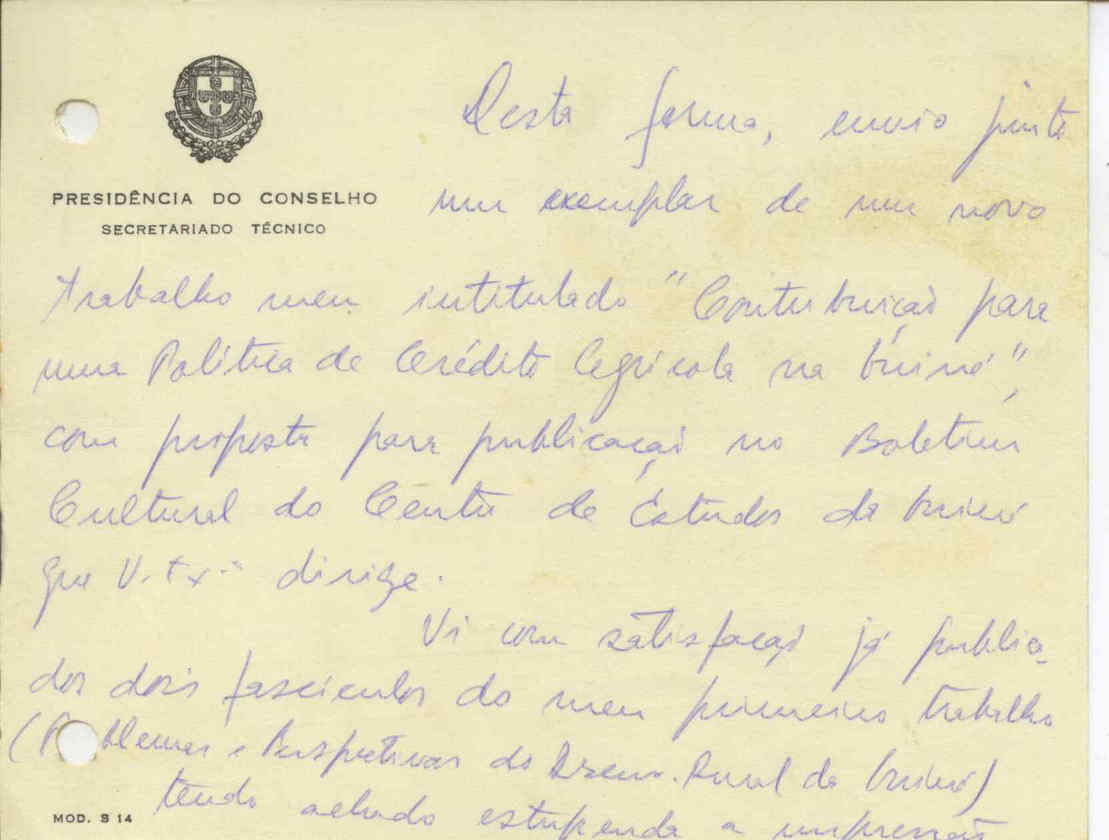 PRESIDÊNCIA DO CONSELHO
SECRETARIADO TÉCNICO
Desta forma, envio junto
um exemplar de um novo
trabalho meu intitulado "Contribuição para
uma Política de Crédito Agrícola na Guiné",
com proposta para publicação no Boletim
Cultural do Centro de Estudos da Guiné
que V. Ex.ª dirige.
Vi com satisfação já publica-
dos dois fascículos do meu primeiro trabalho
(Problemas e Perspetivas do Desenv. Rural da Guiné)
tendo achado estupenda a impressão
MOD. S 14